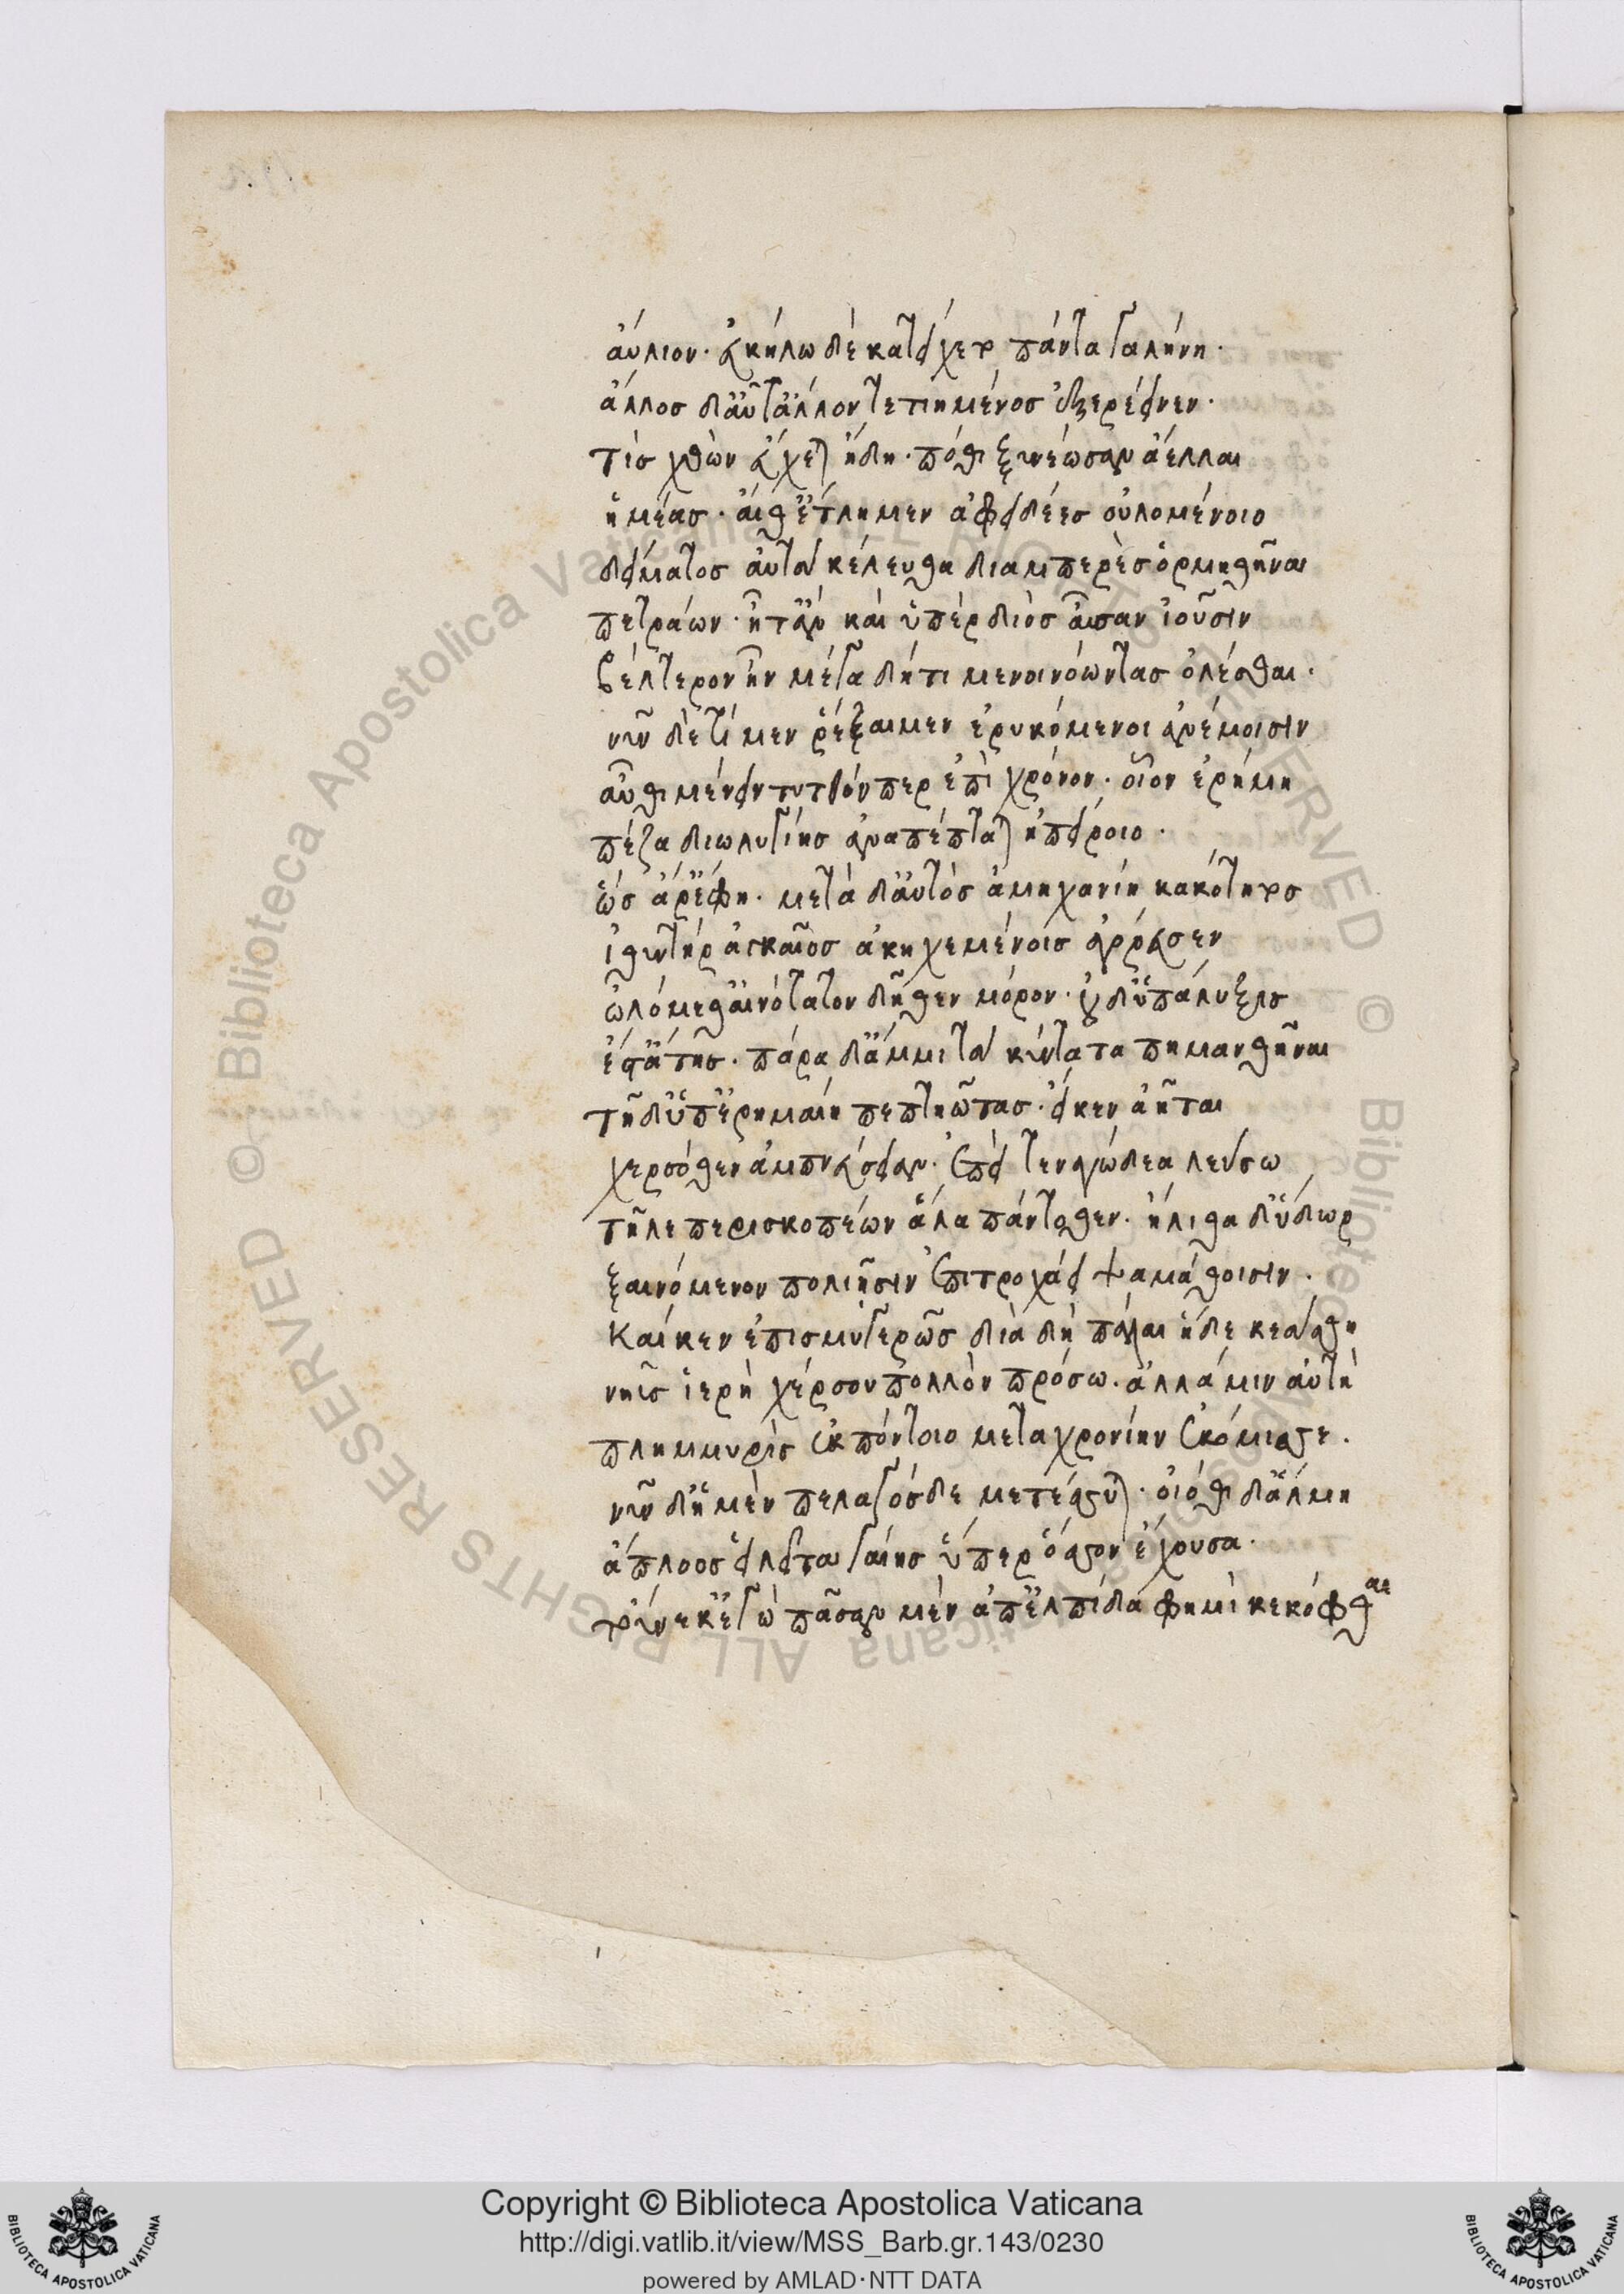 αὔλιον· εὐκήλῳ δὲ κατείχετο πάντα γαλήνῃ·
ἄλλος δ' αὖτ' ἄλλον τετιημένος ἐξερέεινεν·
τίς χθὼν εὔχεται ἥδη· πόθι ξυνέωσαν ἄελλαι
ἡμέας· αἴθ' ἔτλημεν ἀφειδέες οὐλομένοιο
δείματος αὐτὰ κέλευθα διαμπερὲς ὁρμηθῆναι
πετράων· ἦ τ' ἂν καὶ ὑπὲρ διὸς αἶσαν ἰοῦσιν
βέλτερον ἦν μέγα δή τι μενοινώοντας ὀλέσθαι·
νῦν δὲ τί μεν ῥέξαιμεν ἐρυκόμενοι ἀνέμοισιν
αὖθι μένειν τυτθόν περ ἐπὶ χρόνον· οἷον ἐρήμη
πέζα διωλυγίης ἀναπέπταται ἠπείροιο·
ὣς ἄρ' ἔφη· μετὰ δ' αὐτὸς ἀμηχανίῃ κακότητος
ἰθυντὴρ ἀγκαῖος ἀκηχεμένοις ἀγόρευσεν
ὠλόμεθ' αἰνότατον δῆθεν μόρον· οὐδ' ὑπάλυξις
ἔστ' ἄτης· πάρα δ' ἄμμι τὰ κύντατα πημανθῆναι
τῇδ' ὑπ' ἐρημαίῃ πεπτηῶτας· εἴ κεν ἀῆται
χερσόθεν ἀμπνεύσειαν· ἐπεὶ τεναγώδεα λεύσω
τῆλε περισκοπέων ἅλα πάντοθεν· ἤλιθα δ' ὕδωρ
ξαινόμενον πολιῇσιν ἐπιτροχάει ψαμάθοισιν·
Καί κεν ἐπισμυγερῶς διὰ δὴ πάλαι ἥδε κεάσθη
νηῦς ἱερὴ χέρσου πολλὸν πρόσω· ἀλλά μιν αὐτὴ
πλημμυρὶς ἐκ πόντοιο μεταχρονίην ἐκόμισσε·
νῦν δ' ἡ μὲν πελαγόσδε μετέσσυται· οἰόθι δ' ἅλμη
ἄπλοος εἰλεῖται γαίης ὕπερ ὅσσον ἔχουσα·
τούνεκ' ἐγὼ πᾶσαν μὲν ἀπ' ἐλπίδα φημὶ κεκόφθαι
Copyright © Biblioteca Apostolica Vaticana
http://digi.vatlib.it/view/MSS_Barb.gr.143/0230
powered by AMLAD·NTT DATA